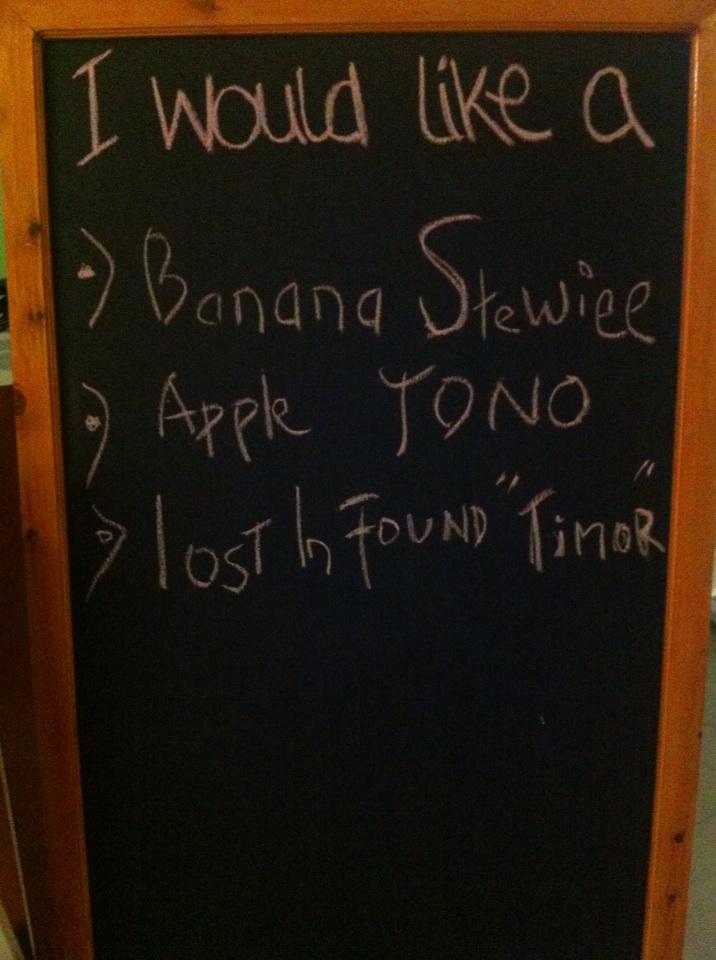 I would like a
•) Banana Stewiee
•) Apple TONO
•) lOST In FOUND "TimOR"